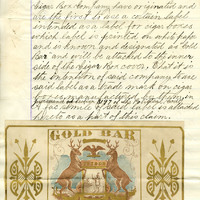 Cigar Box Company have originated and
are the first to use a certain label
intended as a label for cigar boxes
which label is printed on white paper
and is known and designated as Gold
Bar and will be attached to the inner
side of the Cigar Box cover. That it is
the intention of said company to use
said label as a trade mark on cigar
boxes manufactured by them, in
fac simile of said label is attached
hereto as a part of this claim.
GOLD BAR